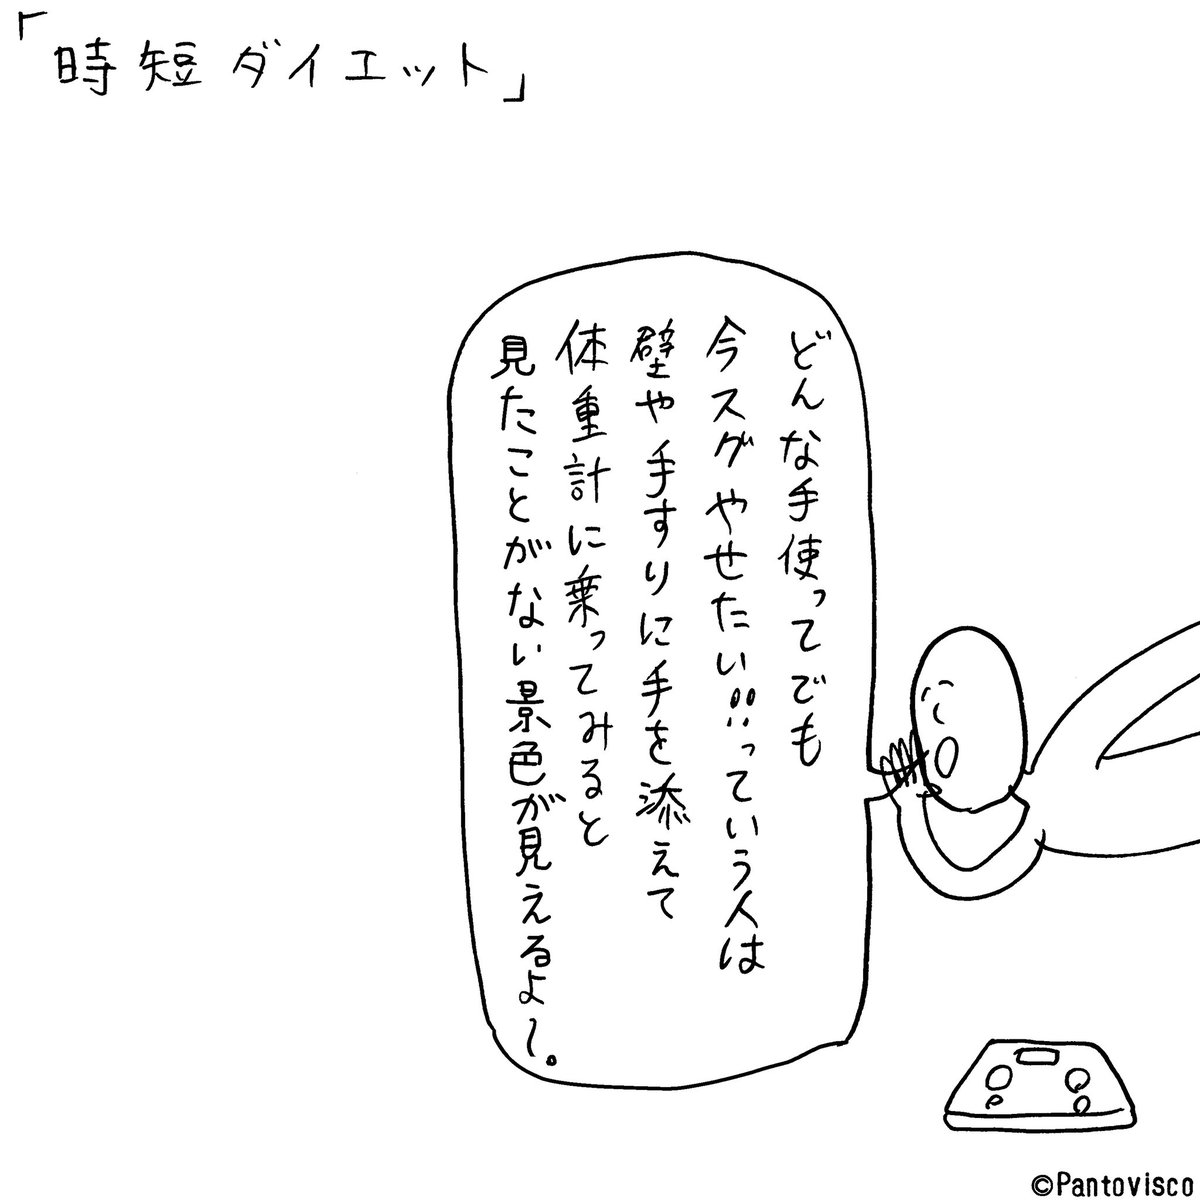 「時短ダイエット」
どんな手使ってでも
今スグやせたい!!っていう人は
壁や手すりに手を添えて
体重計に乗ってみると
見たことがない景色が見えるよ〜。
©Pantovisco